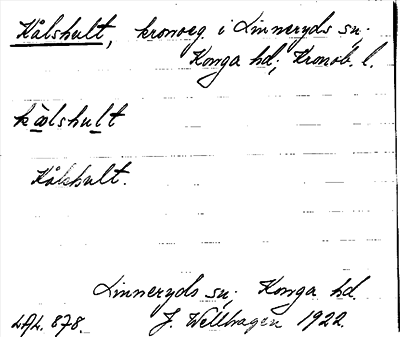 Kålshult, kronoeg. i Linneryds sn;
Konga hd; Kronob. l.
kålshult
Kålshult.
Linneryds sn; Konga hd.
LAL. 878. J. Wellhagen 1922.